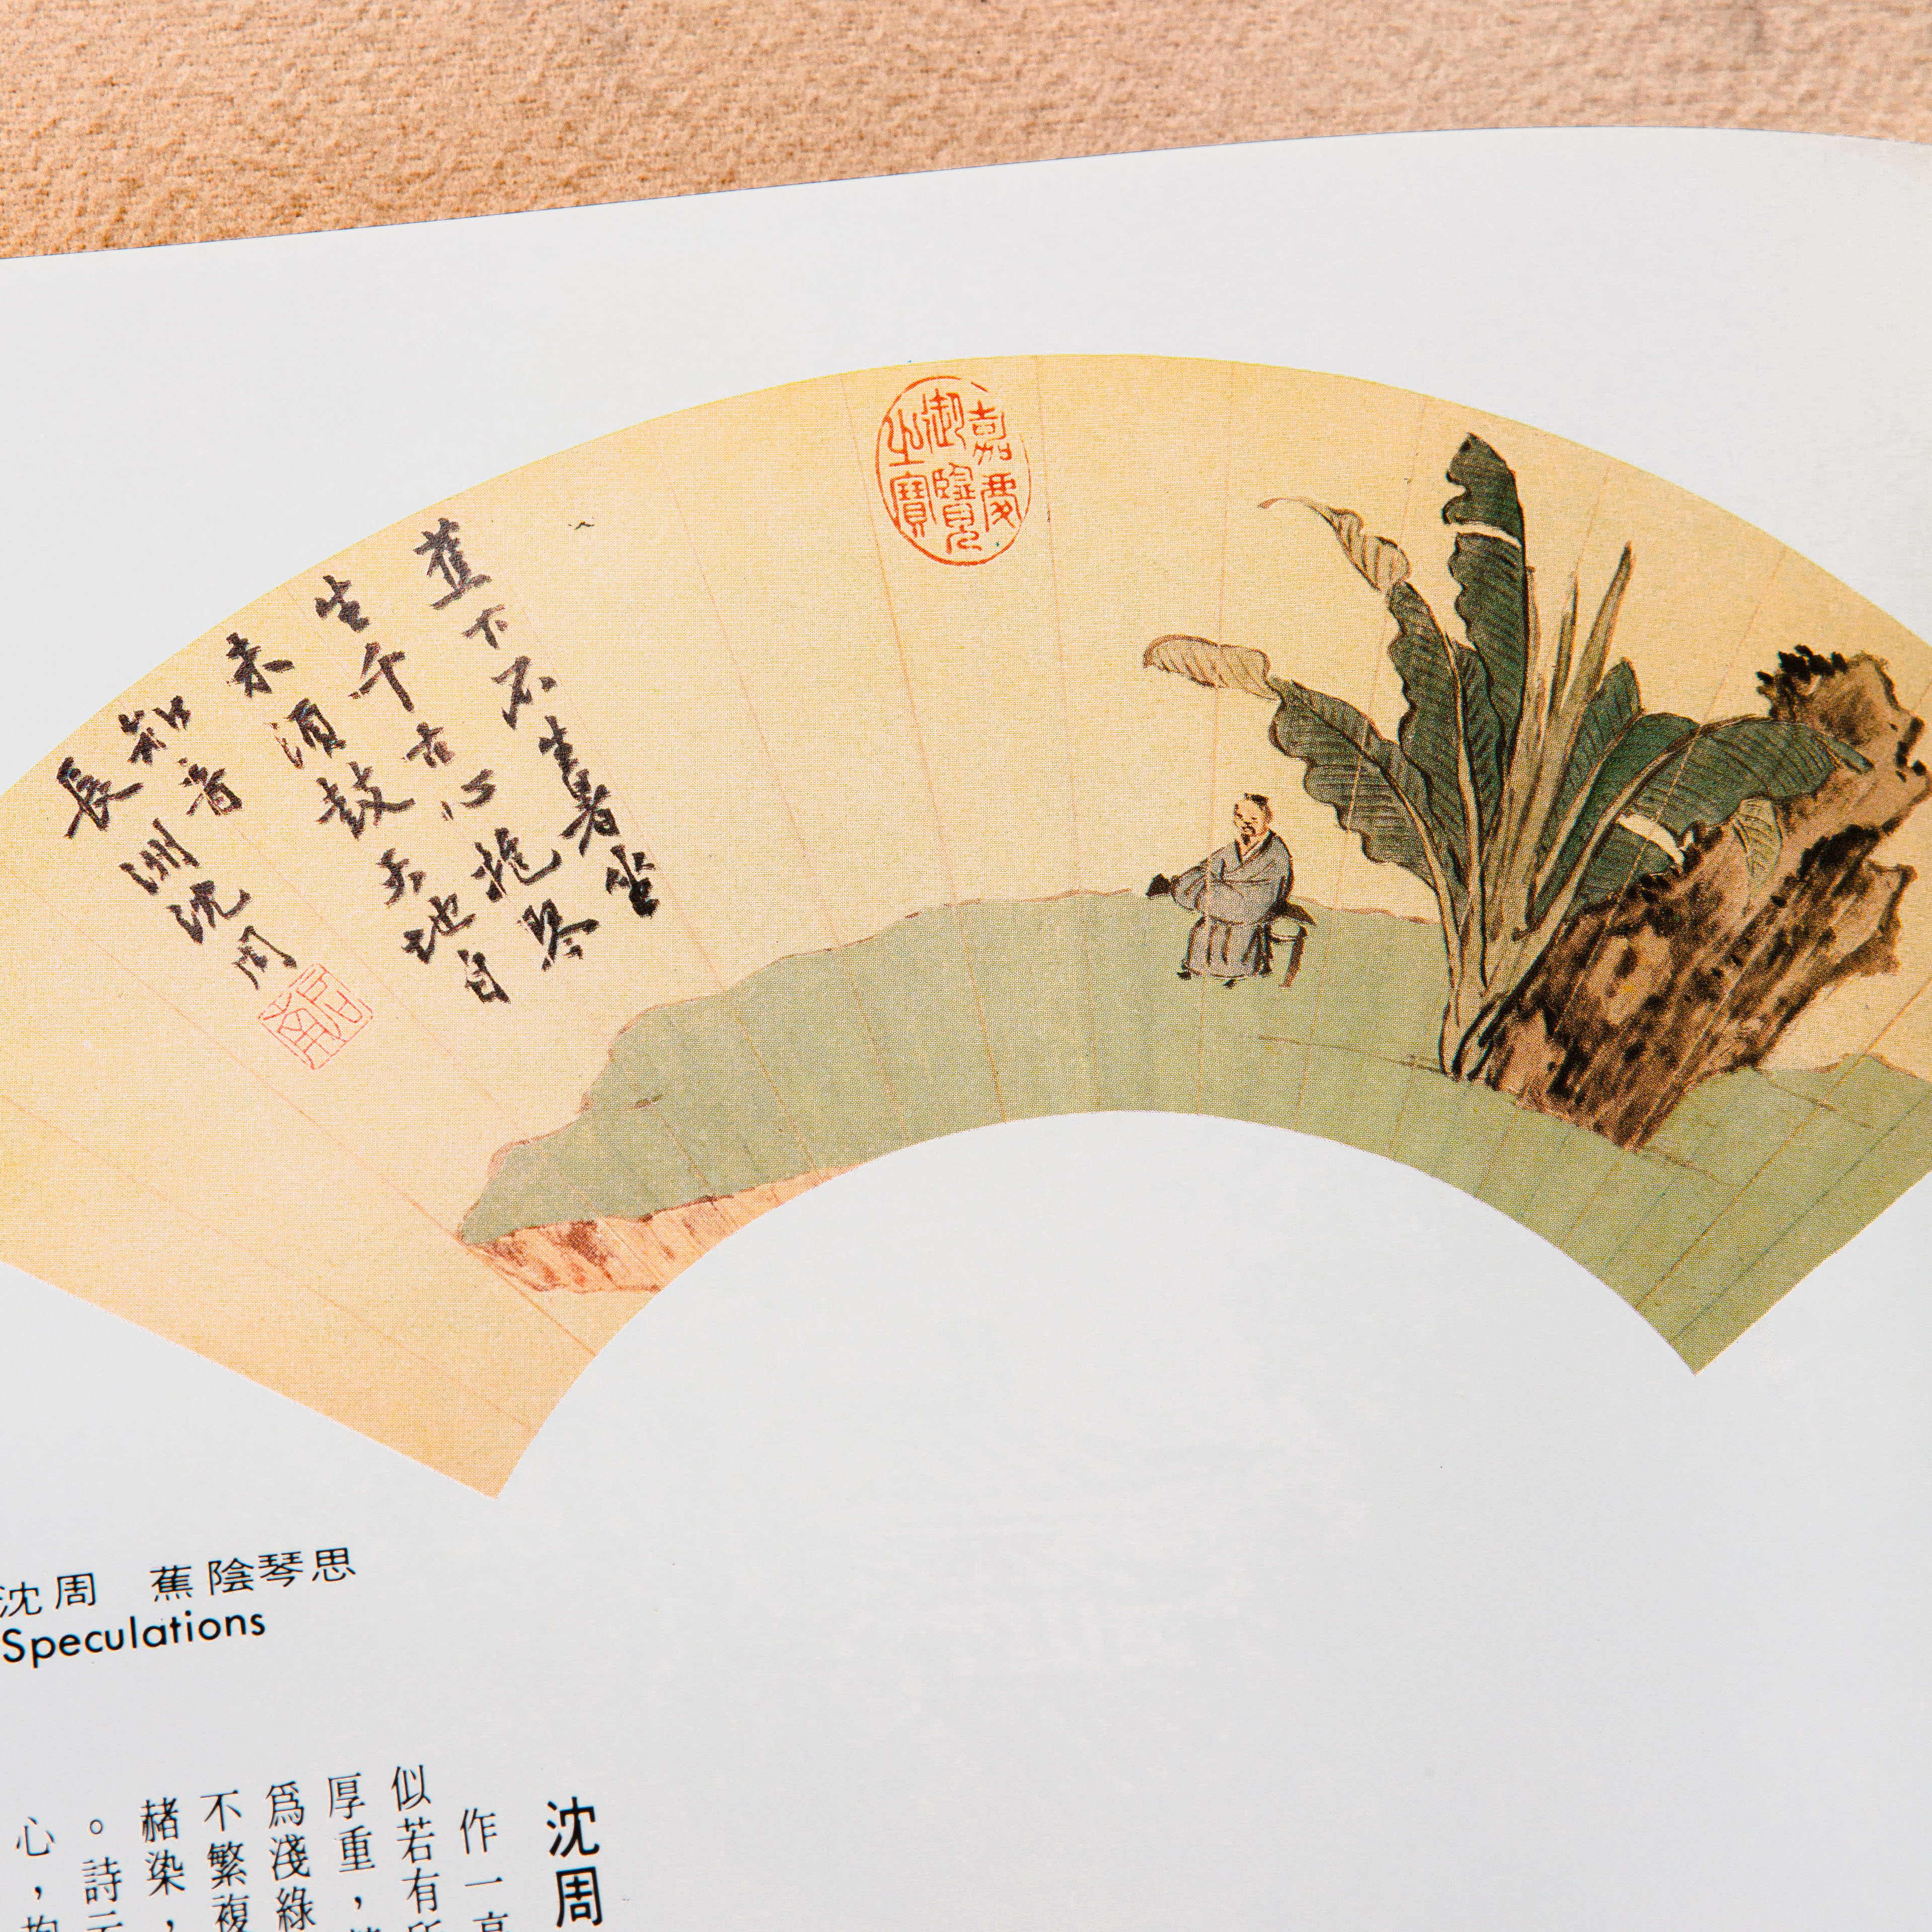 蕉下不生暑坐
生千古心抱琴
未須鼓天地自
知音
長洲沈周
嘉慶
御覽
之寶
沈周 蕉陰琴思
Speculations
沈周
作一高
似若有所
厚重，
爲淺綠
不繁複
赭染，
。詩云
心，抱